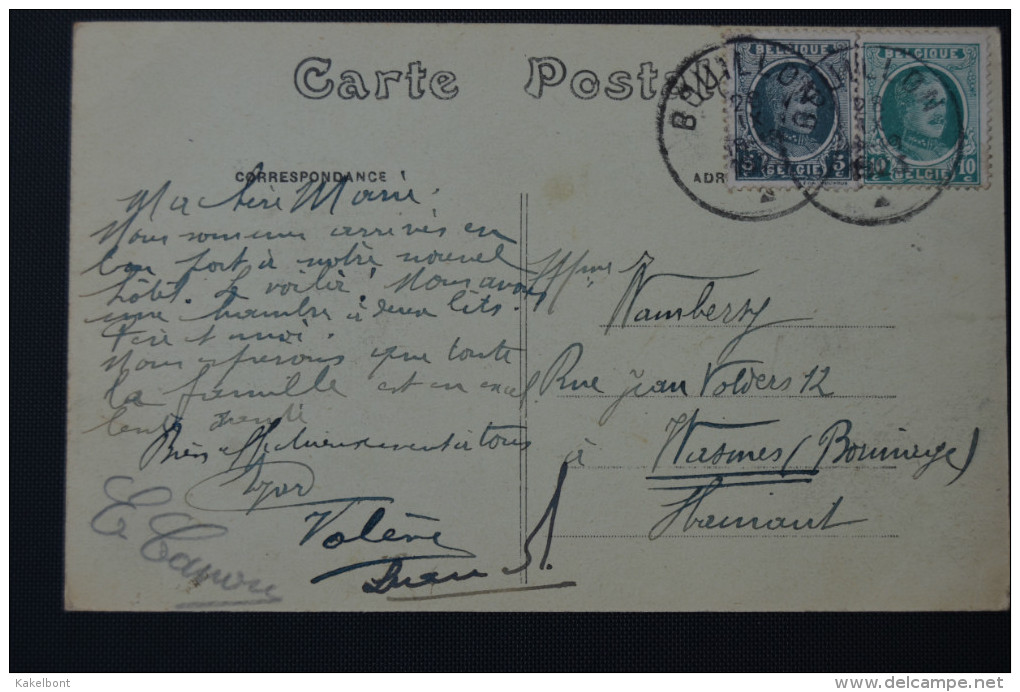 Carte Posta
BOUILLON
BOUILLON
BELGIQUE
BELGIQUE
5 c 5 c
BELGIË
10 10 c
BELGIË
CORRESPONDANCE
ADR
Ma chère Marie
Nous sommes arrivés en
bon port à notre nouvel
hôtel. Le voilà! Nous avons
une chambre à deux lits.
et moi.
Nous espérons que toute
la famille est en excel
lente santé
Bien affectueusement à tous
Valère
E. Canon
Mme
Wambersy
Rue Jean Volders 12
à Wasmes (Borinage)
Hainaut
Kakelbont
delcampe.net